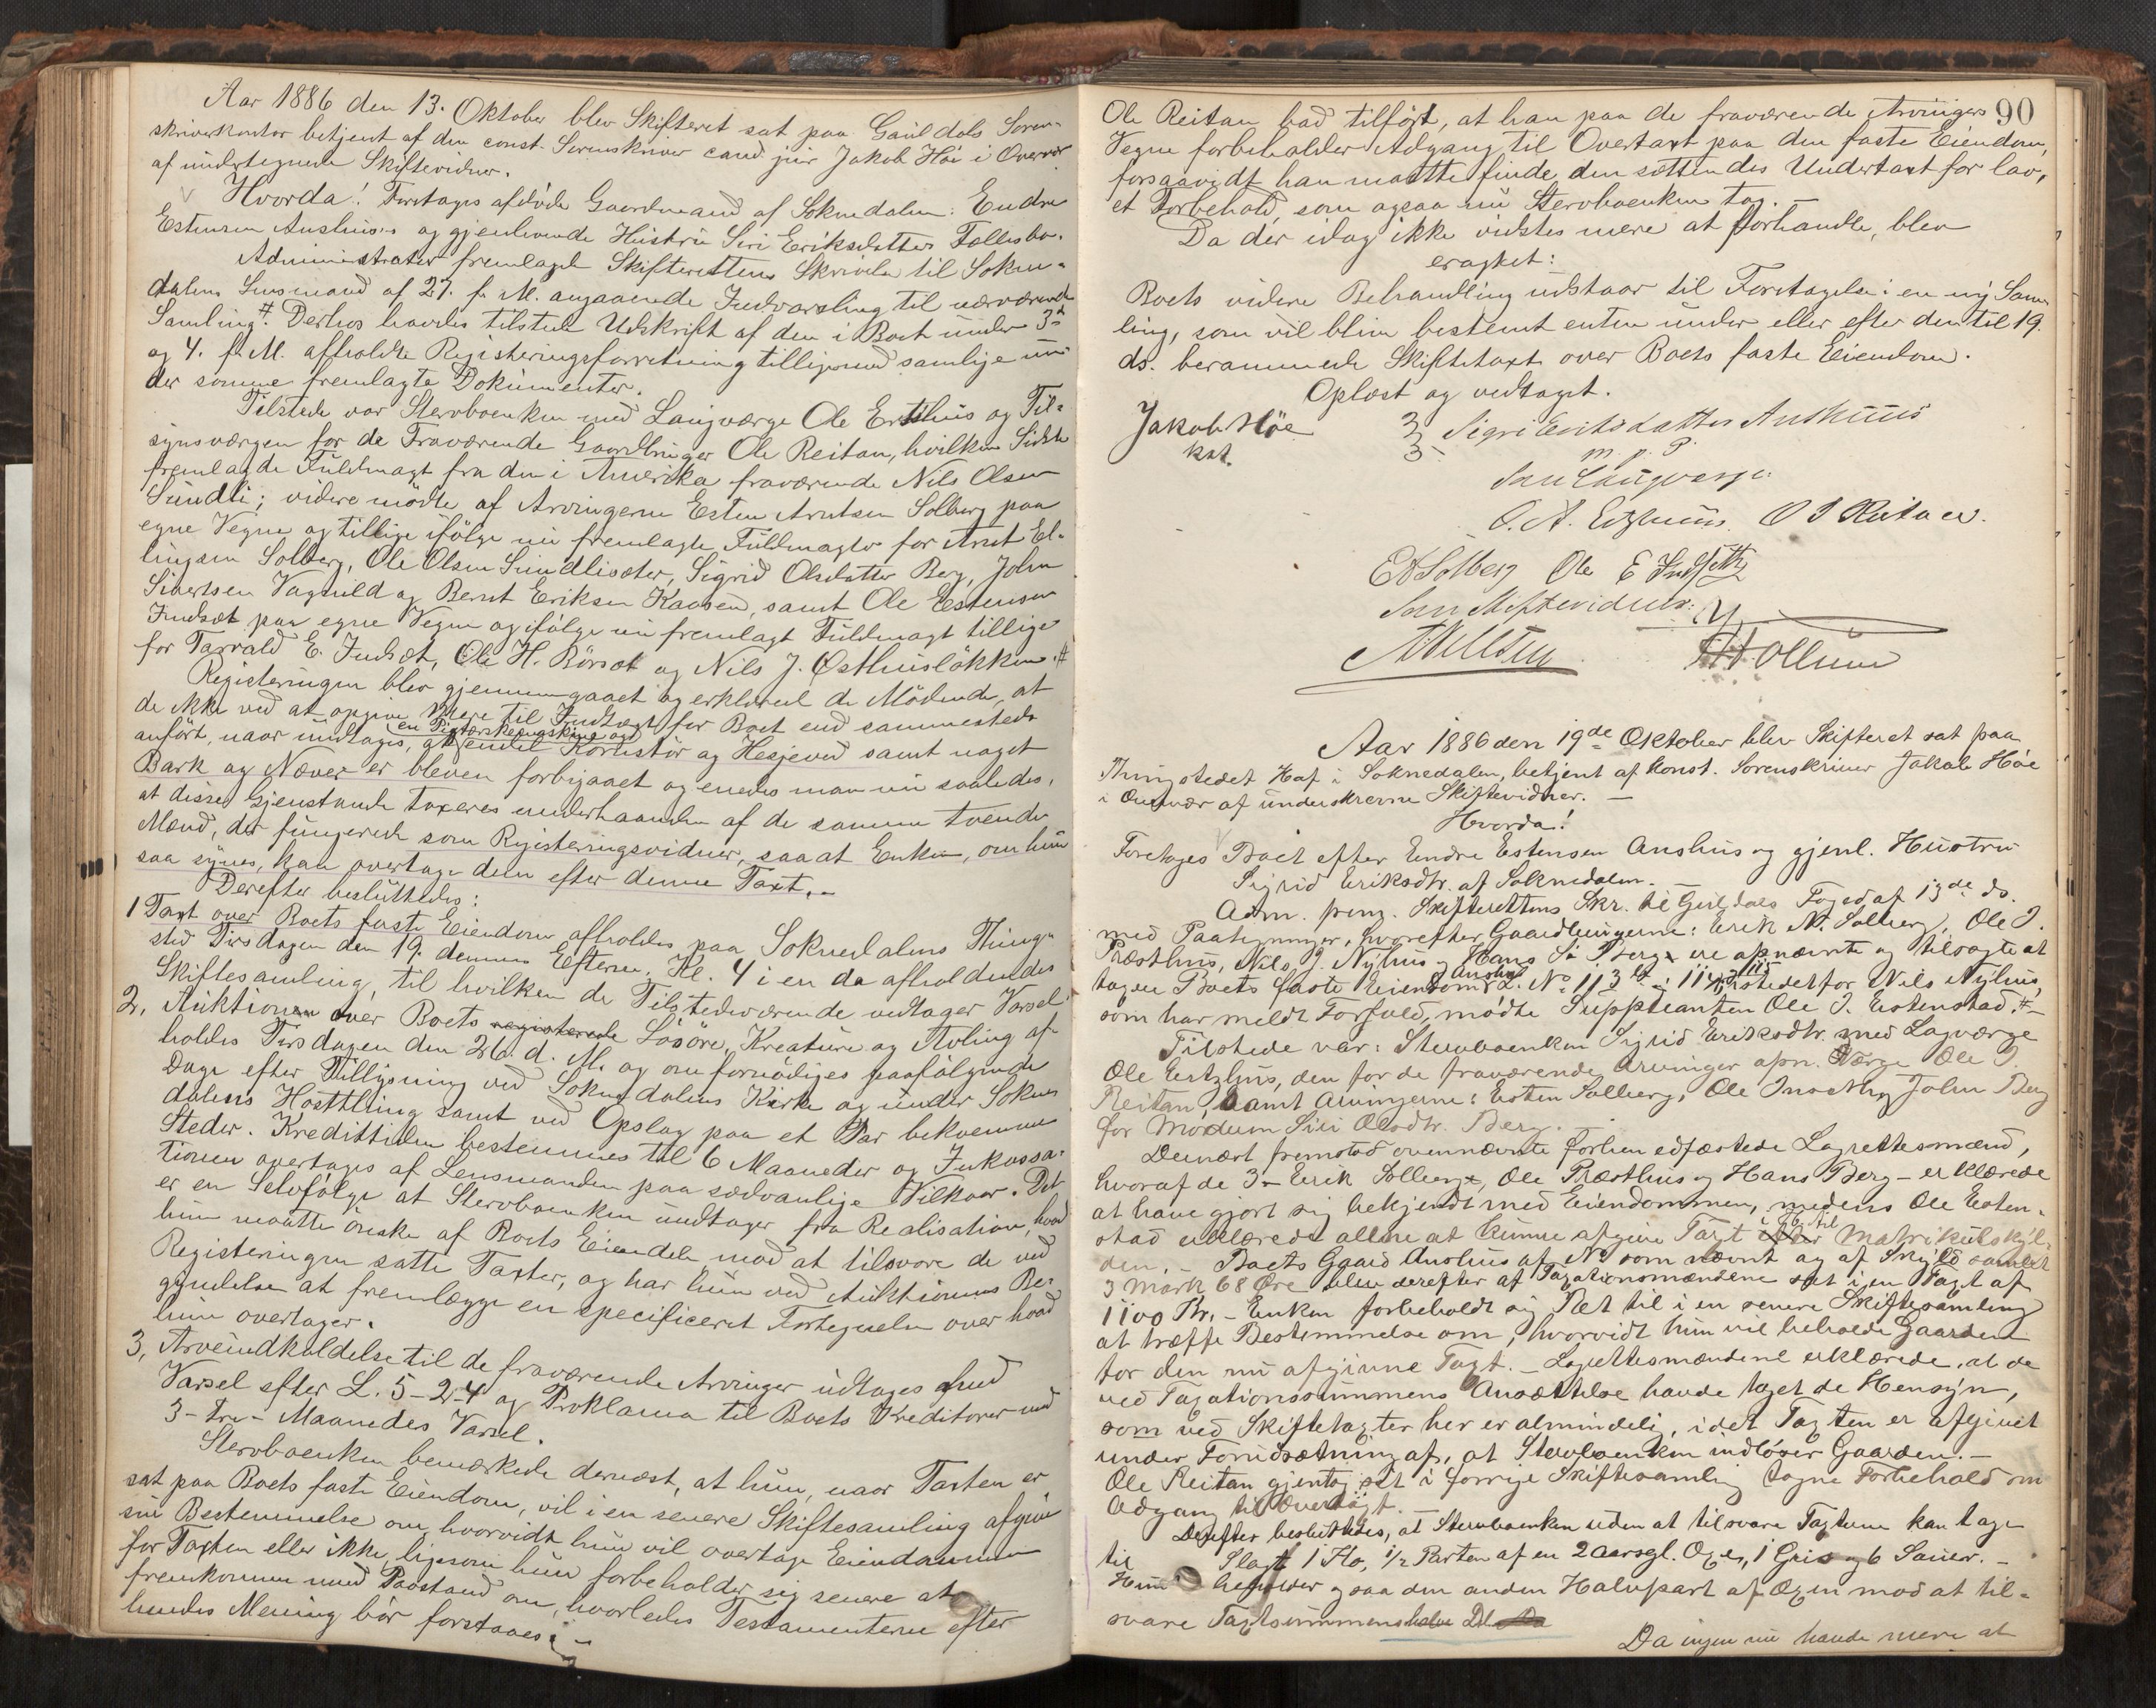 Aar 1886 den 13. Oktober blev Skifteret sat paa Guldals Soren-
skriverkontor betjent af den const. Sorenskriver cand jur Jakob Höe i Overvær
af undertegnede Skiftevidner.
Hvorda! Foretoges afdöde Gaardmand af Soknedalen: Endre
Estensen Anshus's og gjenlevende Hustru Siri Eriksdatters Fællesbo.
Administrator fremlagde Skifterettens Skrivelse til Sokne-
dalens Lensmand af 27. f. M. angaaende Indvarsling til nærværende
Samling.# Derhos havdes tilstede Udskrift af den i Boet under 3die
og 4. f. M. afholdte Registeringsforretning tilligemed samtlige un-
der samme fremlagte Dokumenter.
Tilstede var Stervboenken med Laugværge Ole Ertshus og Til-
synsværgen for de Fraværende Gaardbruger Ole Reitan, hvilken Sidste
fremlagde Fuldmagt fra den i Amerika fraværende Nils Olsen
Sundli; videre mödte af Arvingerne Esten Arntsen Solberg paa
egne Vegne og tillige ifölge nu fremlagte Fuldmagter for Arnt El-
lingsen Solberg, Ole Olsen Sundlisæter, Sigrid Olsdatter Berg, John
Sivertsen Vagnild og Bernt Eriksen Kaasen, samt Ole Estensen
Indset paa egne Vegne og ifölge nu fremlagt Fuldmagt tillige
for Tarrald E. Indset, Ole H. Börset og Nils J. Østhuslökken.#
Registeringen blev gjennemgaaet og erklærede de Mödende, at
de ikke ved at opgive mere til Indtægt for Boet end sammesteds
anfört, naar undtages, at en Pigtærskemaskine og endel Körestör og Hesjeved samt noget
Bark og Næver er bleven forbigaaet og enedes man nu saaledes,
at disse Gjenstande taxeres underhaanden af de samme tvende
Mænd, der fungerede som Registeringsvidner, saa at Enken, om hun
saa synes, kan overtage dem efter denne Taxt.-
Derefter besluttedes:
1 Taxt over Boets faste Eiendom afholdes paa Soknedalens Thing-
sted Tirsdagen den 19. dennes Efterm. Kl. 4 i en da afholdendes
Skiftesamling, til hvilken de Tilstedeværende vedtager Varsel.
2, Auktionen over Boets registerede Lösöre, Kreature og Avling af-
holdes Tirsdagen den 26. d. M. og om fornödiges paafölgende
Dage efter Tillysning ved Soknedalens Kirke og under Sokne-
dalens Hösttthing samt ved Opslag paa et Par bekvemme
Steder. Kredittiden bestemmes til 6 Maaneder og Inkassa-
tionen overtages af Lensmanden paa sædvanlige Vilkaar. Det
er en Selvfölge at Stervboenken undtager fra Realisation, hvad
hun maatte önske af Boets Eiendele mod at tilsvare de ved
Registeringen satte Taxter, og har hun ved Auktionens Be-
gyndelse at fremlægge en specificeret Fortegnelse over hvad
hun overtager.
3, Arveindkaldelse til de fraværende Arvinger udtages med
Varsel efter L. 5-2-4 og Proklama til Boets Kreditorer med
3-tre- Maaneders Varsel.
Stervboenken bemærkede dernæst, at hun, naar Taxten er
sat paa Boets faste Eiendom, vil i en senere Skiftesamling afgive
sin Bestemmelse om, hvorvidt hun vil overtage Eiendommen
for Taxten eller ikke, ligesom hun forbeholder sig senere at
fremkomme med Paastand om, hvorledes Testamenterne efter
hendes Mening bör forstaaes.-
90
Ole Reitan bad tilfört, at han paa de fraværende Arvingers
Vegne forbeholder Adgang til Overtaxt paa den faste Eiendom,
forsaavidt han maatte finde den sættendes Undertaxt for lav,
et Forbehold, som ogsaa nu Stervboenken tog.-
Da der idag ikke vidstes mere at forhandle, blev
eragtet:
Boets videre Behandling udstaar til Foretagelse i en ny Sam-
ling, som vil blive bestemt enten under eller efter den til 19.
ds. berammede Skiftetaxt over Boets faste Eiendom.
Oplæst og vedtaget.
Jakob Höe
kst.
Sigri Eriksdatter Anshuus
m. p. P.
Som Laugværge:
O. A. Ertzhuus O J Reitan.
E A Solberg Ole E Indset
Som Skiftevidner:
Aar 1886 den 19de Oktober blev Skifteret sat paa
Thingstedet Hof i Soknedalen, betjent af konst. Sorenskriver Jakob Höe
i Overvær af underskrevne Skiftevidner.-
Hvorda!
Foretoges Boet efter Endre Estensen Anshus og gjenl. Hustru
Sigrid Eriksdtr. af Soknedalen.-
Adm. frem. Skifterettens Skr. til Guldals Foged af 13de ds.
med Paategninger, hvorefter Gaardbrugerne: Erik N. Solberg, Ole J.
Præsthus, Nils J. Nyhus og Hans S. Berg ere opnævnte og tilsagte at
taxere Boets faste Eiendom Anshus L. No 113. Istedet for Nils Nyhus,
som har meldt Forfald, mödte Suppleanten Ole J. Estenstad.#-
Tilstede var: Stervboenken Sigrid Eriksdtr. med Lagværge
Ole Ertzhus, den for de fraværende Arvinger opn. Værge Ole J.
Reitan, samt Arvingerne: Esten Solberg, Ole Indset og John Berg
for Moderen Siri Olsdtr. Berg.-
Dernæst fremstod ovennævnte forhen edfæstede Lagrettesmænd,
hvoraf de 3- Erik Solberg, Ole Præsthus og Hans Berg- erklærede
at have gjort sig bekjendt med Eiendommen, medens Ole Esten-
stad erklærede alene at kunne afgive Taxt i Fh. til Matrikulskyl-
den.- Boets Gaard Anshus af No som nævnt og af Skyld samlet
3 Mark 68 Öre blev derefter af Taxationsmændene sat i en Taxt af
1100 Kr.- Enken forbeholdt sig Ret til i en senere Skiftesamling
at træffe Bestemmelse om, hvorvidt hun vil beholde Gaarden
for den nu afgivne Taxt.- Lagrettesmændene erklærede, at de
ved Taxationssummens Ansættelse havde taget de Hensyn,
som ved Skiftetaxter her er almindelig, idet Taxten er afgivet
under Forudsætning af, at Stervboenken indlöser Gaarden.-
Ole Reitan gjentog sit i forrige Skiftesamling tagne Forbehold om
Adgang til Overtaxt.-
Derefter besluttedes, at Stervboenken uden at tilsvare Taxterne kan tage
til Slagt 1 Ko, 1/2 Parten af en 2 Aarsgl. Oxe, 1 Gris og 6 Sauer.-
Hun beholder ogsaa den anden Halvpart af Oxen mod at til-
svare Taxtsummens halve Del
Da ingen nu havde mere at